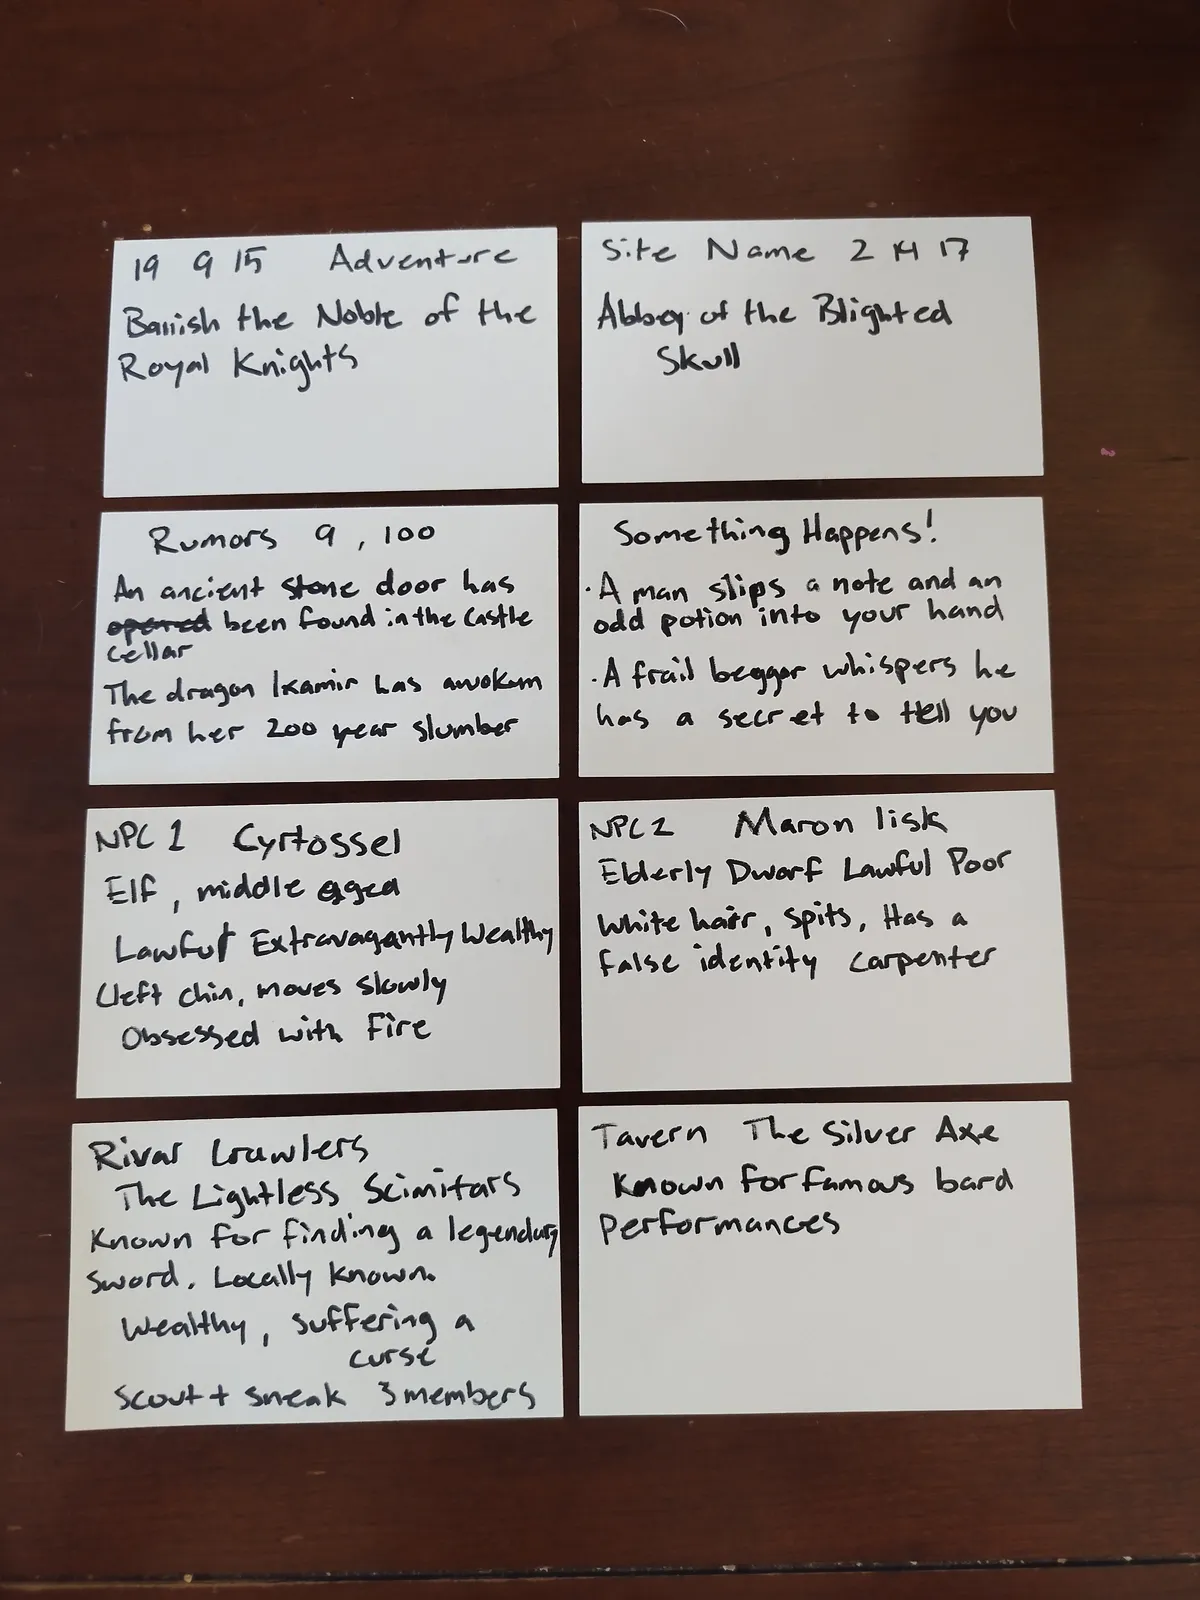 19 9 15 Adventure
Banish the Noble of the
Royal Knights
Site Name 2 14 17
Abbey of the Blighted
Skull
Rumors 9, 100
An ancient stone door has
opened been found in the Castle
Cellar
The dragon Ixamir has awoken
from her 200 year slumber
Something Happens!
· A man slips a note and an
odd potion into your hand
· A frail beggar whispers he
has a secret to tell you
NPC 1 Cyrtossel
Elf, middle aged
Lawful Extravagantly Wealthy
Cleft chin, moves slowly
Obsessed with Fire
NPC 2 Maron lisk
Elderly Dwarf Lawful Poor
White hair, spits, Has a
false identity carpenter
Rival Crawlers
The Lightless Scimitars
Known for finding a legendary
Sword. Locally known.
Wealthy, suffering a
curse
Scout + sneak 3 members
Tavern The Silver Axe
Known for famous bard
performances